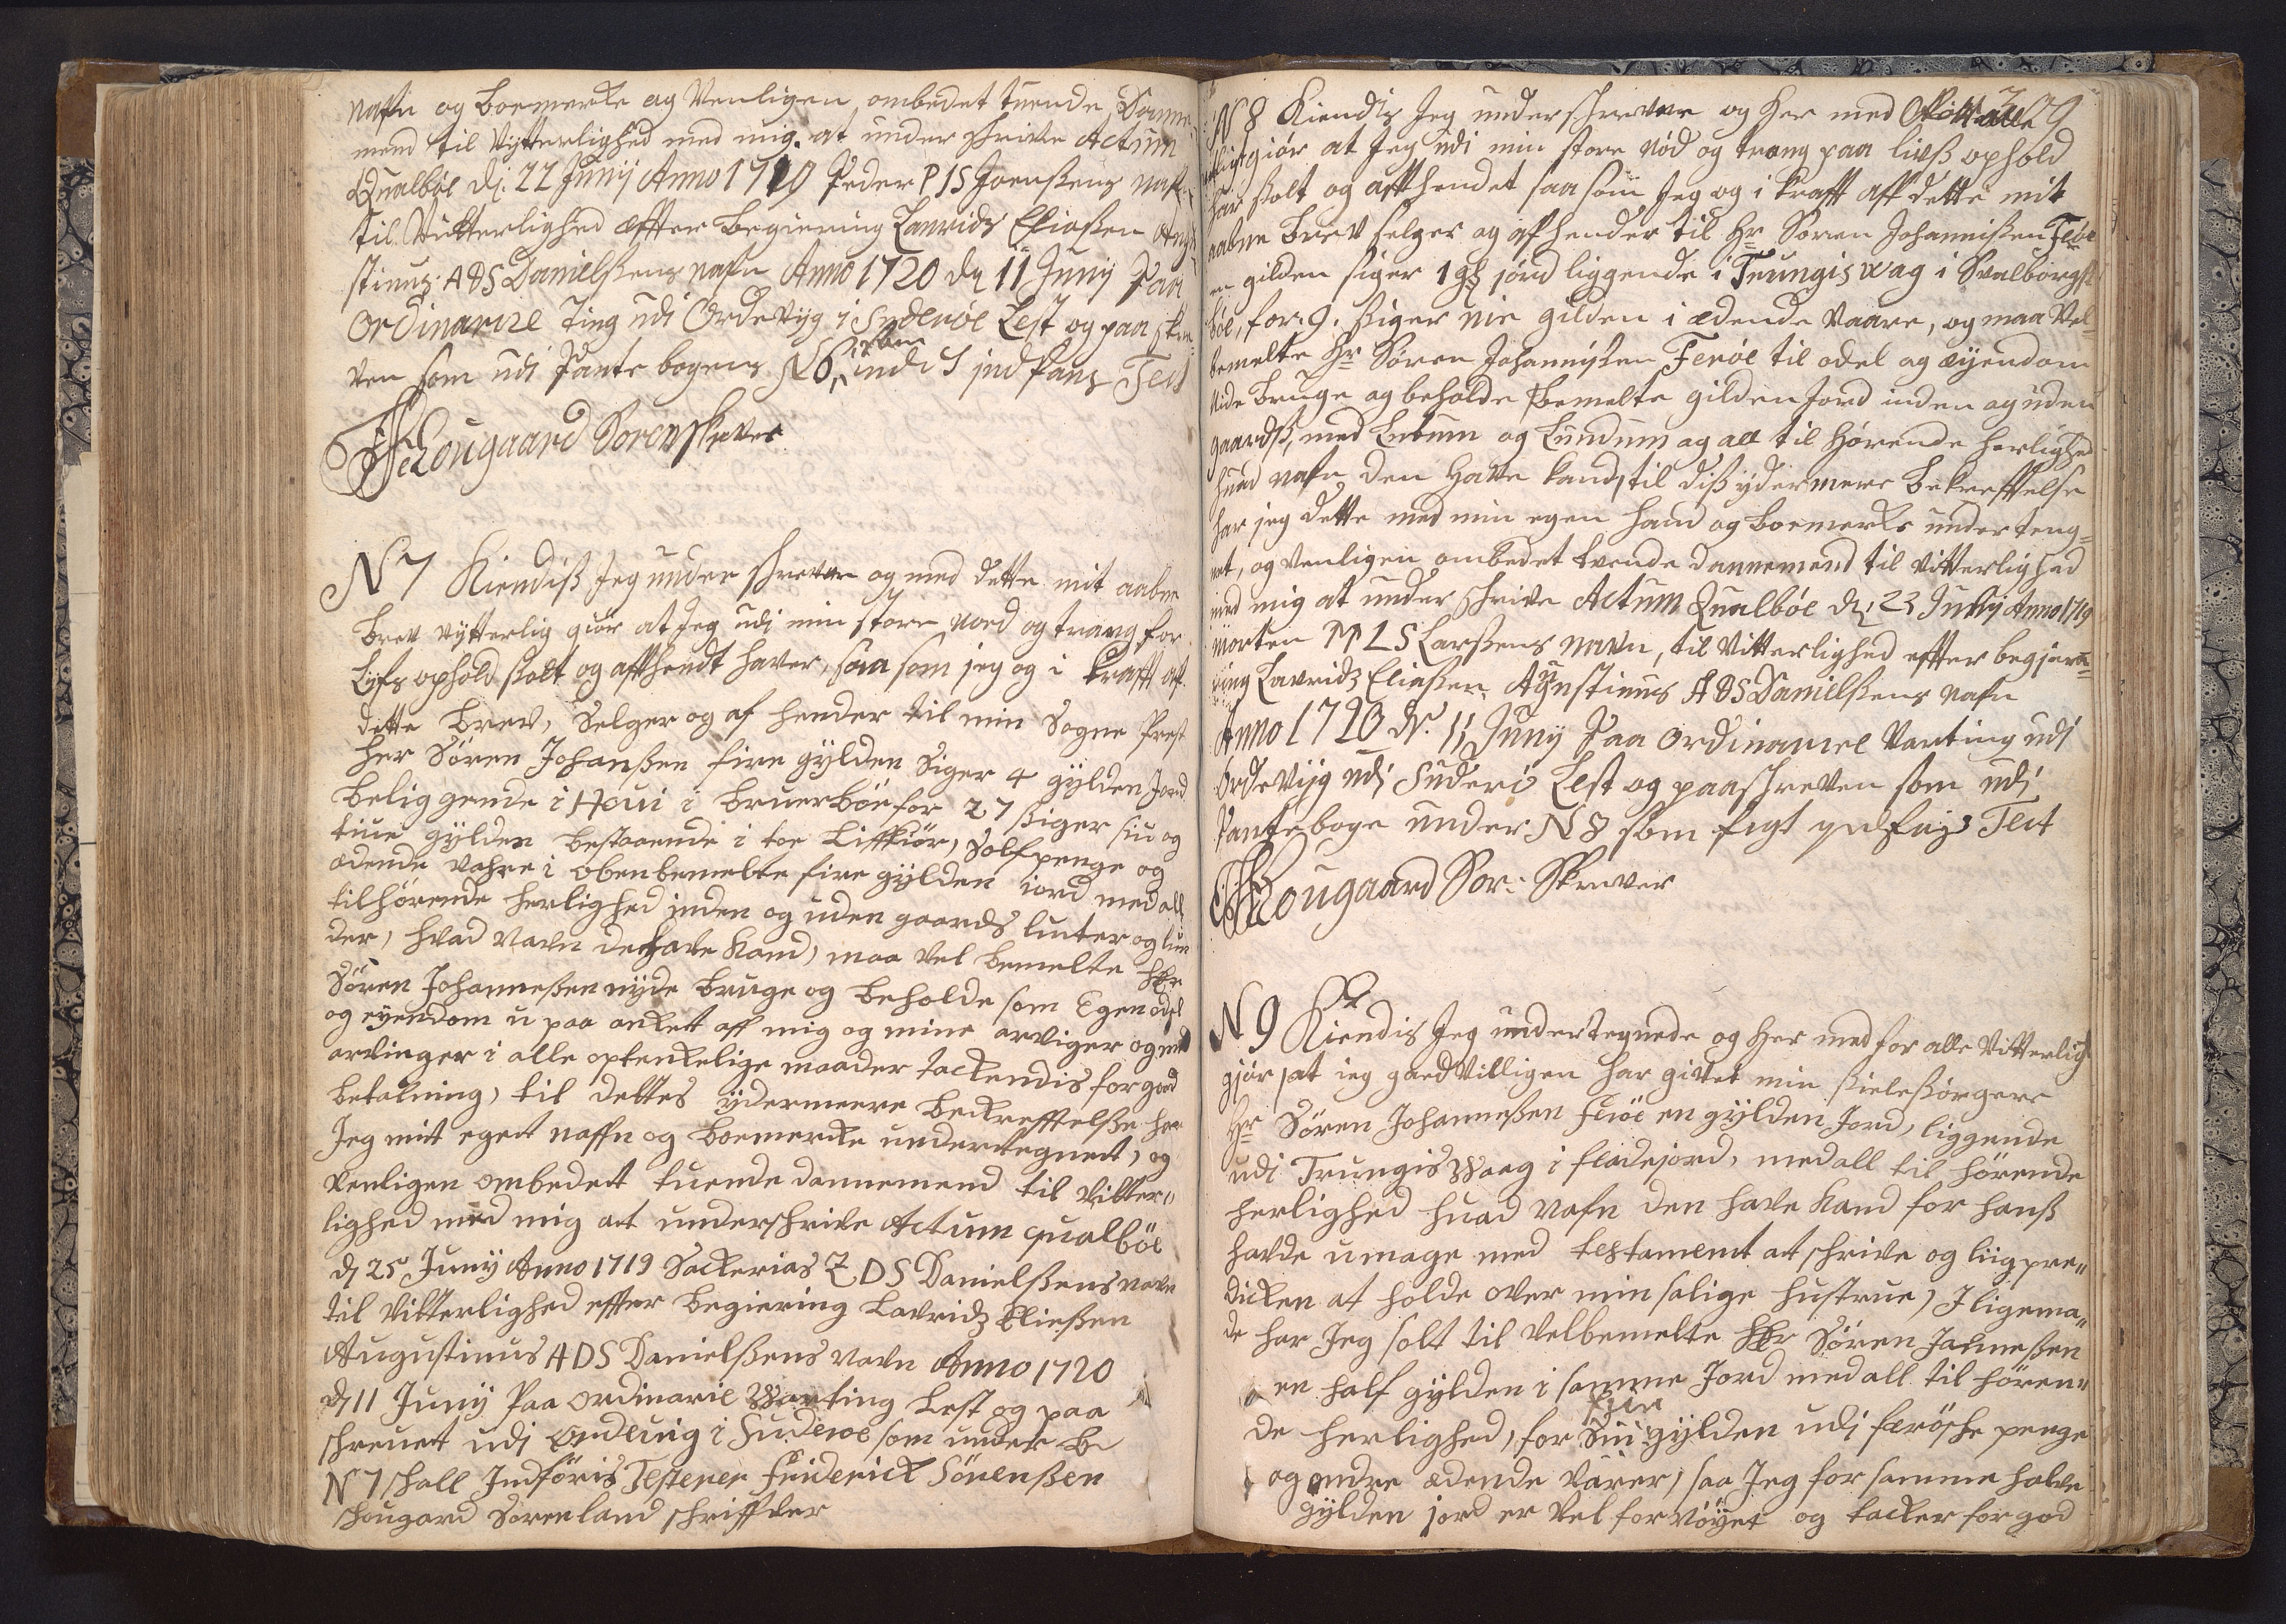 nafn og boemerke og Venligen ombedet tuende Danne-
mend til Vytterlighed med mig at under schrive Actum
Qualböe dj: 22 Junij Anno 1719 Peder P I S Joenßens nafn
til Vitterlighed effter begiering Lauridz Eliaßen Augu
stinus A D S Danielßens nafn Anno 1720 dn 11 Junij Paa
Ordinarie Ting udi Ordevijg i Suderöe Lest og paa skre-
ven som udi Pante bogens No 6 indført Test
Schougaard Sorenskriver

N 7 Kiendiß Jeg under schrevne og med dette mit aabne
Brev vytterlig giör at Jeg udi min store noed og trang for
Lifs ophold solt og affhendt haver, saa som jeg og i krafft af
dette Brev, Selger og af hender til min Sogne Prest
Her Sören Johanßen fire gylden Siger 4 gylden Jord
beliggende i Hoüi i bruerböe for 27 ßiger siu og
tiue gylden bestaaende i toe Liffkiör, Sölfpenge og
ædende vahre i obenbemelte fire gylden iord med all
tilhörende herlighed inden og uden gaards lutter og lun
der, hvad navn de have kand, maa vel bemelte Hr
Sören Johanneßen nyde bruge og beholde som Egen odel
og eyendom u paa anket aff mig og mine arviger og med
arvinger i alle optenkelige maader tackendis for goed
betalning, til dettes ydermeere bekrefftelße har
Jeg mit eget naffn og boemercke undertegnet, og
venligen ombedet tuende dannemend til vitter,,
lighed med mig at underschrive Actum qualböe
dj 25 Junij Anno 1719 Sackerias Z D S Danielßens navn
til vitterlighed effter begiering Lavridz Eließen
Augustinus A D S Danielßens navn Anno 1720
dj 11 Junij Paa ordinarie Warting Lest og paa
schreuet udj ordeuig i Suderoe som under
N 7 schall Indföris Testerer Friderick Sörenßen
Schougard Sorenland schriffver

N 8 Kiendis Jeg underschrevne og her med alle
giör at Jeg udi min store nöd og trang paa lifß ophold
har solt og affhendet saa som Jeg og i krafft aff dette mit
aabne Brev selger og afhender til Hr Sören Johannißen Feröe
en gilden siger 1 gl jord liggende i Trungiswag i Svalborgs
böe, for 9. ßiger nie gilden i ædende vaare, og maa Vel
bemelte Hr Sören Johannißen Feröe til odel og eijendom
nide bruge og beholde bemelte gilden Jord inden og uden
gaardß, med Lutum og Lundum og all til hörende herlighed
huad nafn den Have kand, til diß ydermere bekrefftelse
har jeg dette med min egen haand og boemerke underteng-
net, og venligen ombedet tvende dannemend til vitterlighed
med mig at under schrive Actum Qualböe dn: 23 Junij Anno 1719
Morten M L S Larßens navn, til vitterlighed effter begjæri-
ing Lavridz Eliaßen Augustinus A D S Danielßens nafn
Anno 1720 dn. 11 Junij Paa ordinarie Varting udj
Ordevijg udj Suderö Lest og paaschreven som udj
Panteboge under N 8 som Test
Schougaard Sor: Skriver

N 9 Kiendis Jeg undertegnede og her med for alle vitterligt
gjör, at jeg goedvilligen har givet min sieleßörgere
Hr Sören Johanneßen Feröe en gylden Jord, liggende
udi Trungiswaag i fladejord, med all til hörende
herlighed huad nafn den have kand for hanß
havde umage med testament at schrive og liigpre,,
dicken at holde over min salige hustrue, I ligema,,
de har Jeg solt til Velbemelte Hr Sören Johneßen
en half gylden i samme Jord med all til hören,,
de herlighed, for Siu gylden udj færösche penge
og andre ædende varer, saa Jeg for samme halve
gylden jord er vel for nöyet og tacker for god